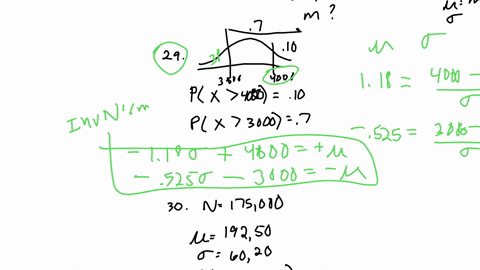 m ?
.7
29.
.10
4000
P( X > 4000) = .10
P( X > 3000) = .7
InvNorm
μ σ
1.18 = 4000 - / σ
-.525 = / σ
- 1.18σ + 4000 = +μ
- .525σ - 3000 = -μ
30. N = 175,000
μ = 192,50
σ = 60,20